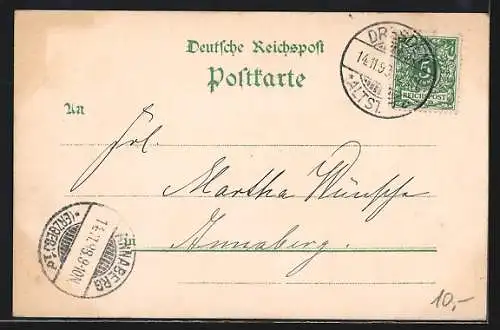 Deutsche Reichspost
Postkarte
An
Frl.
Martha Wünsche
in
Annaberg.
5
REICHSPOST
14.11.9
*ALTST.
ANNABERG
*(ERZGEB.)1*
14.11.98.9-10N.
10,-